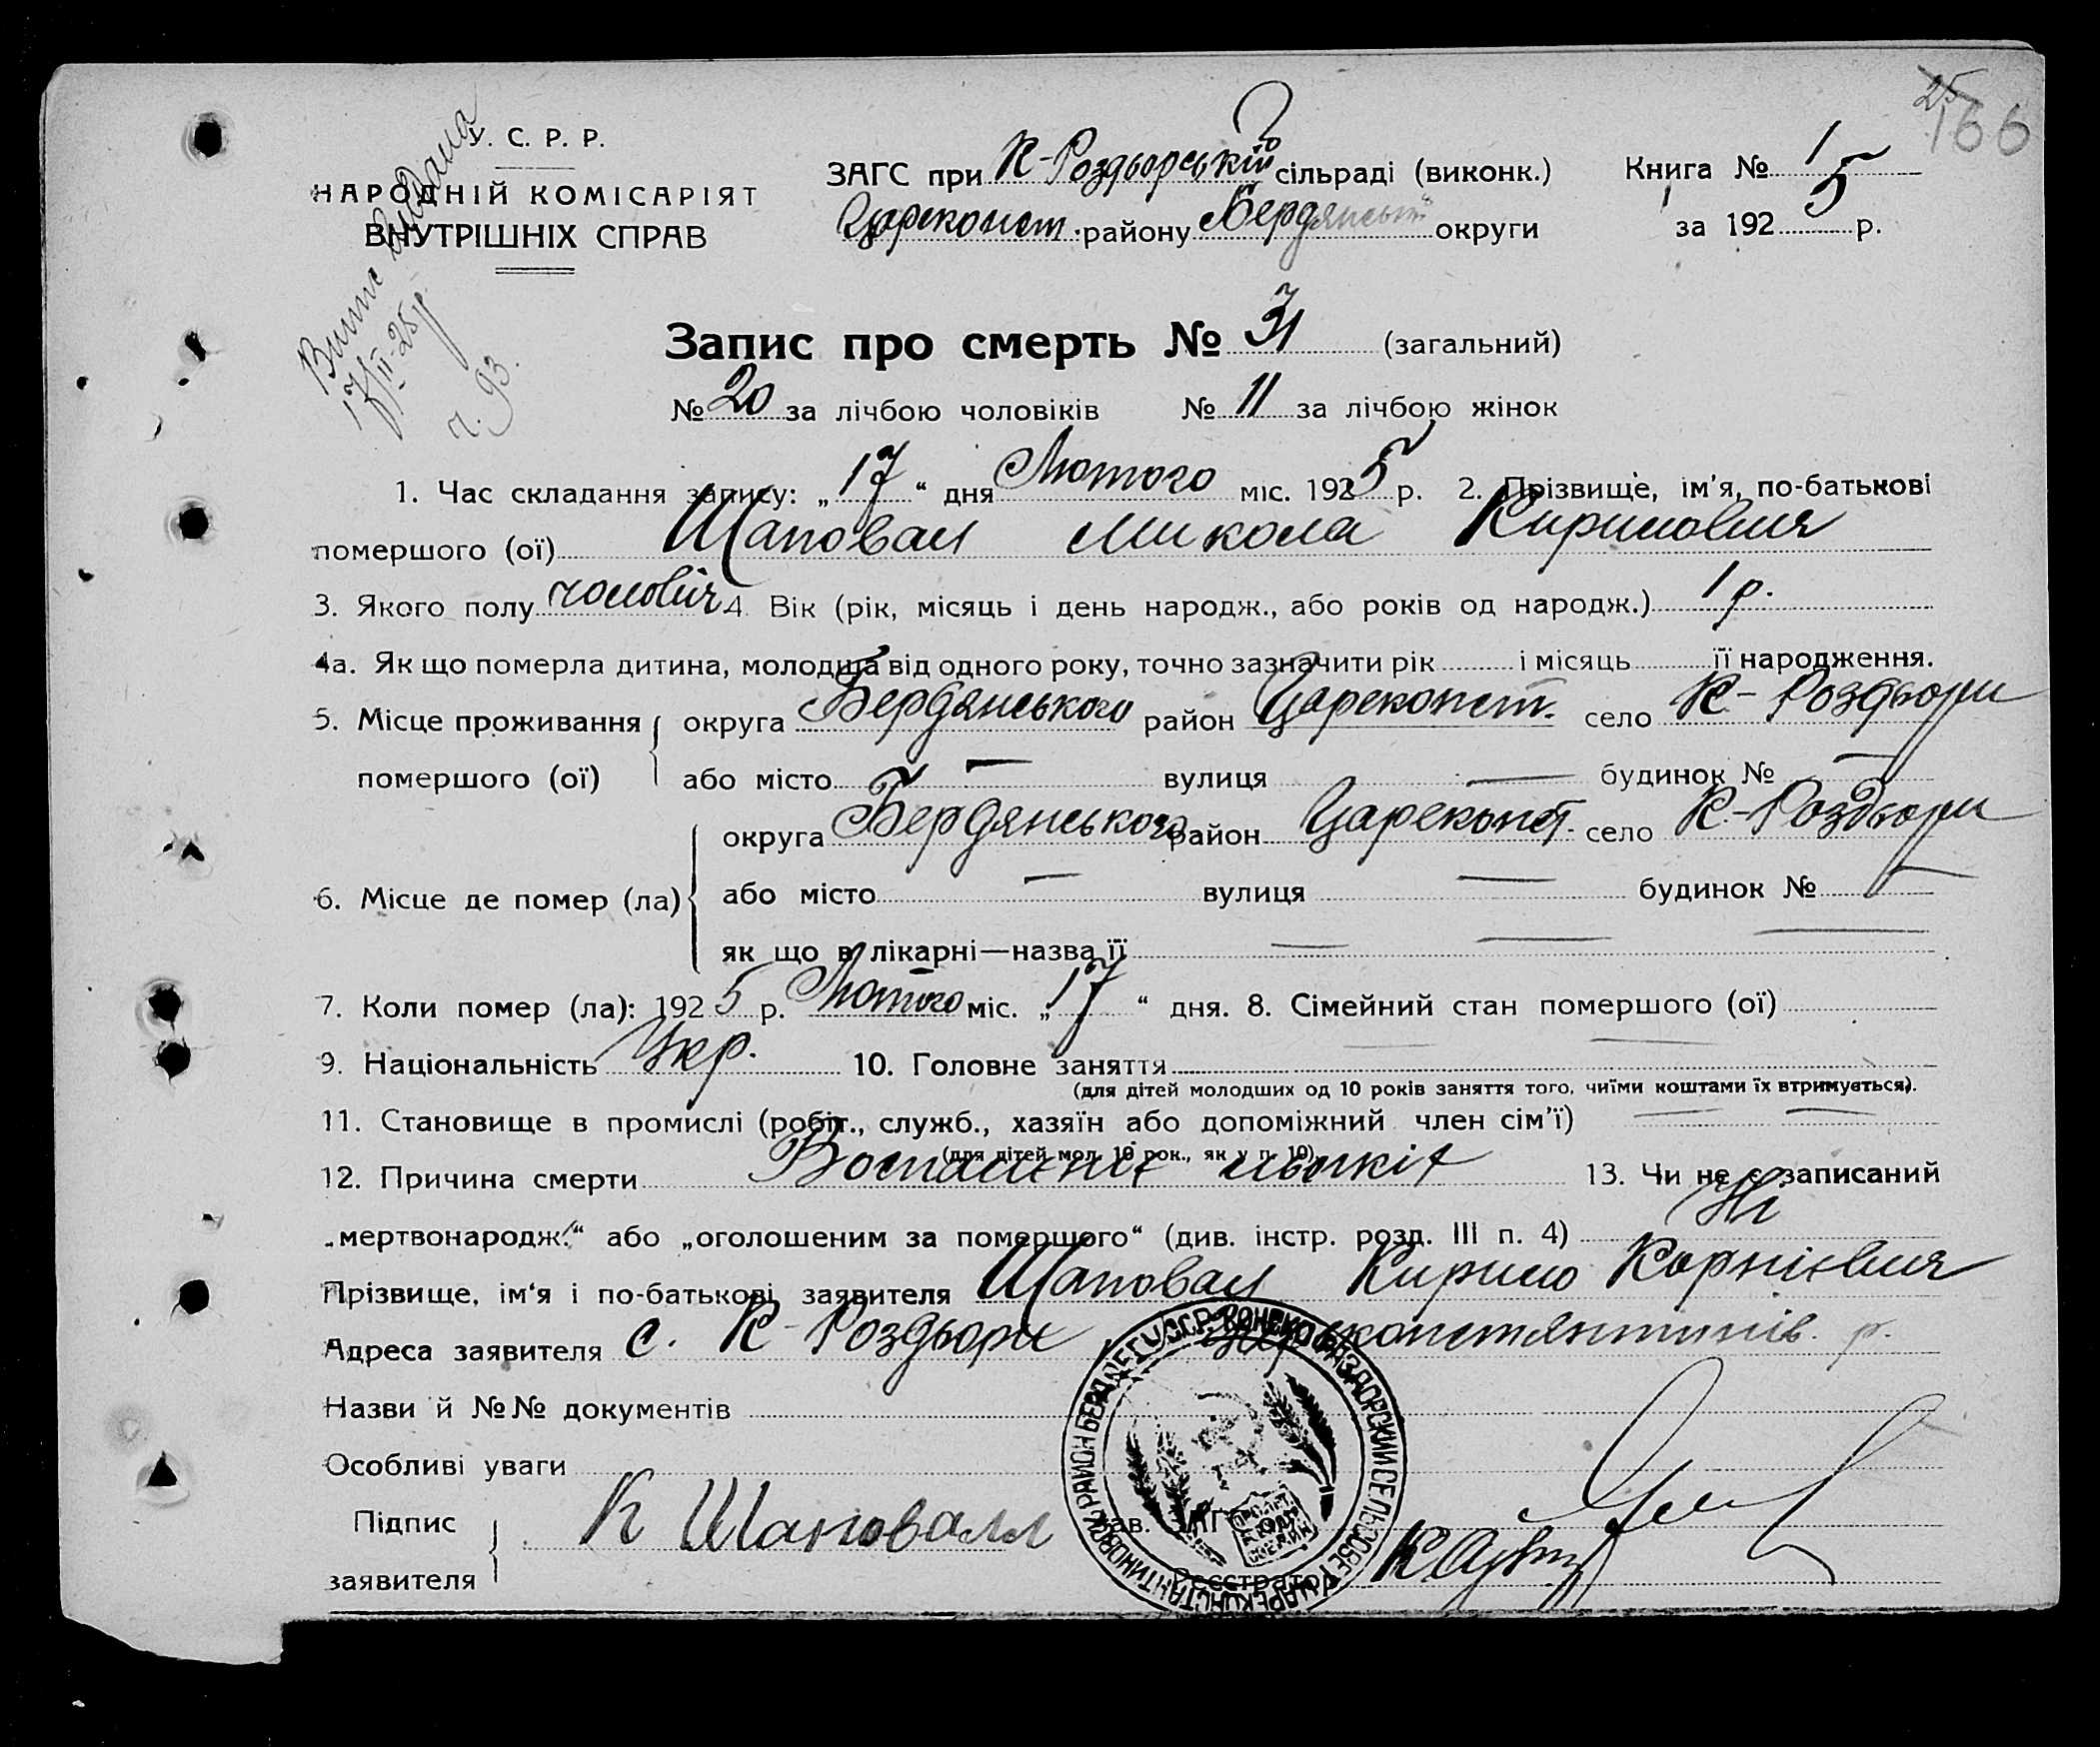 25
166
У. С. Р. Р.
НАРОДНІЙ КОМІСАРІЯТ
ВНУТРІШНІХ СПРАВ
Випис видана
17/II-25 р.
ч. 93.
ЗАГС при К-Роздьорській сільраді (виконк.)
Цареконст. району Бердянськ округи
Книга № 1
за 1925 р.
Запис про смерть № 31 (загальний)
№ 20 за лічбою чоловіків № 11 за лічбою жінок
1. Час складання запису: „17“ дня Лютого міс. 1925 р. 2. Прізвище, ім'я, по-батькові
помершого (ої) Шаповал Микола Кирилович
3. Якого полу чоловіч. 4. Вік (рік, місяць і день народж., або років од народж.) 1 р.
4а. Як що померла дитина, молодща від одного року, точно зазначити рік і місяць її народження.
5. Місце проживання помершого (ої) округа Бердянського район Цареконст. село К-Роздьори
або місто — вулиця — будинок № —
6. Місце де помер (ла) округа Бердянського район Цареконст. село К-Роздьори
або місто — вулиця — будинок № —
як що в лікарні—назва її — — —
7. Коли помер (ла): 1925 р. Лютого міс. „17“ дня. 8. Сімейний стан помершого (ої)
9. Національність Укр. 10. Головне заняття — —
(для дітей молодших од 10 років заняття того, чиїми коштами їх втримується).
11. Становище в промислі (робіт., служб., хазяїн або допоміжний член сім'ї) — —
(для дітей мол. 10 рок., як у п. 10)
12. Причина смерти Воспаленіє льогкіх 13. Чи не є записаний
„мертвонародж.“ або „оголошеним за помершого“ (див. інстр. розд. III п. 4) Ні
Прізвище, ім'я і по-батькові заявителя Шаповал Кирило Корнієвич
Адреса заявителя с. К-Роздьори Цареконстянтинів. р.
Назви й №№ документів
Особливі уваги
Підпис заявителя К Шаповалл
Зав. ЗАГС'ом
Реєстратор